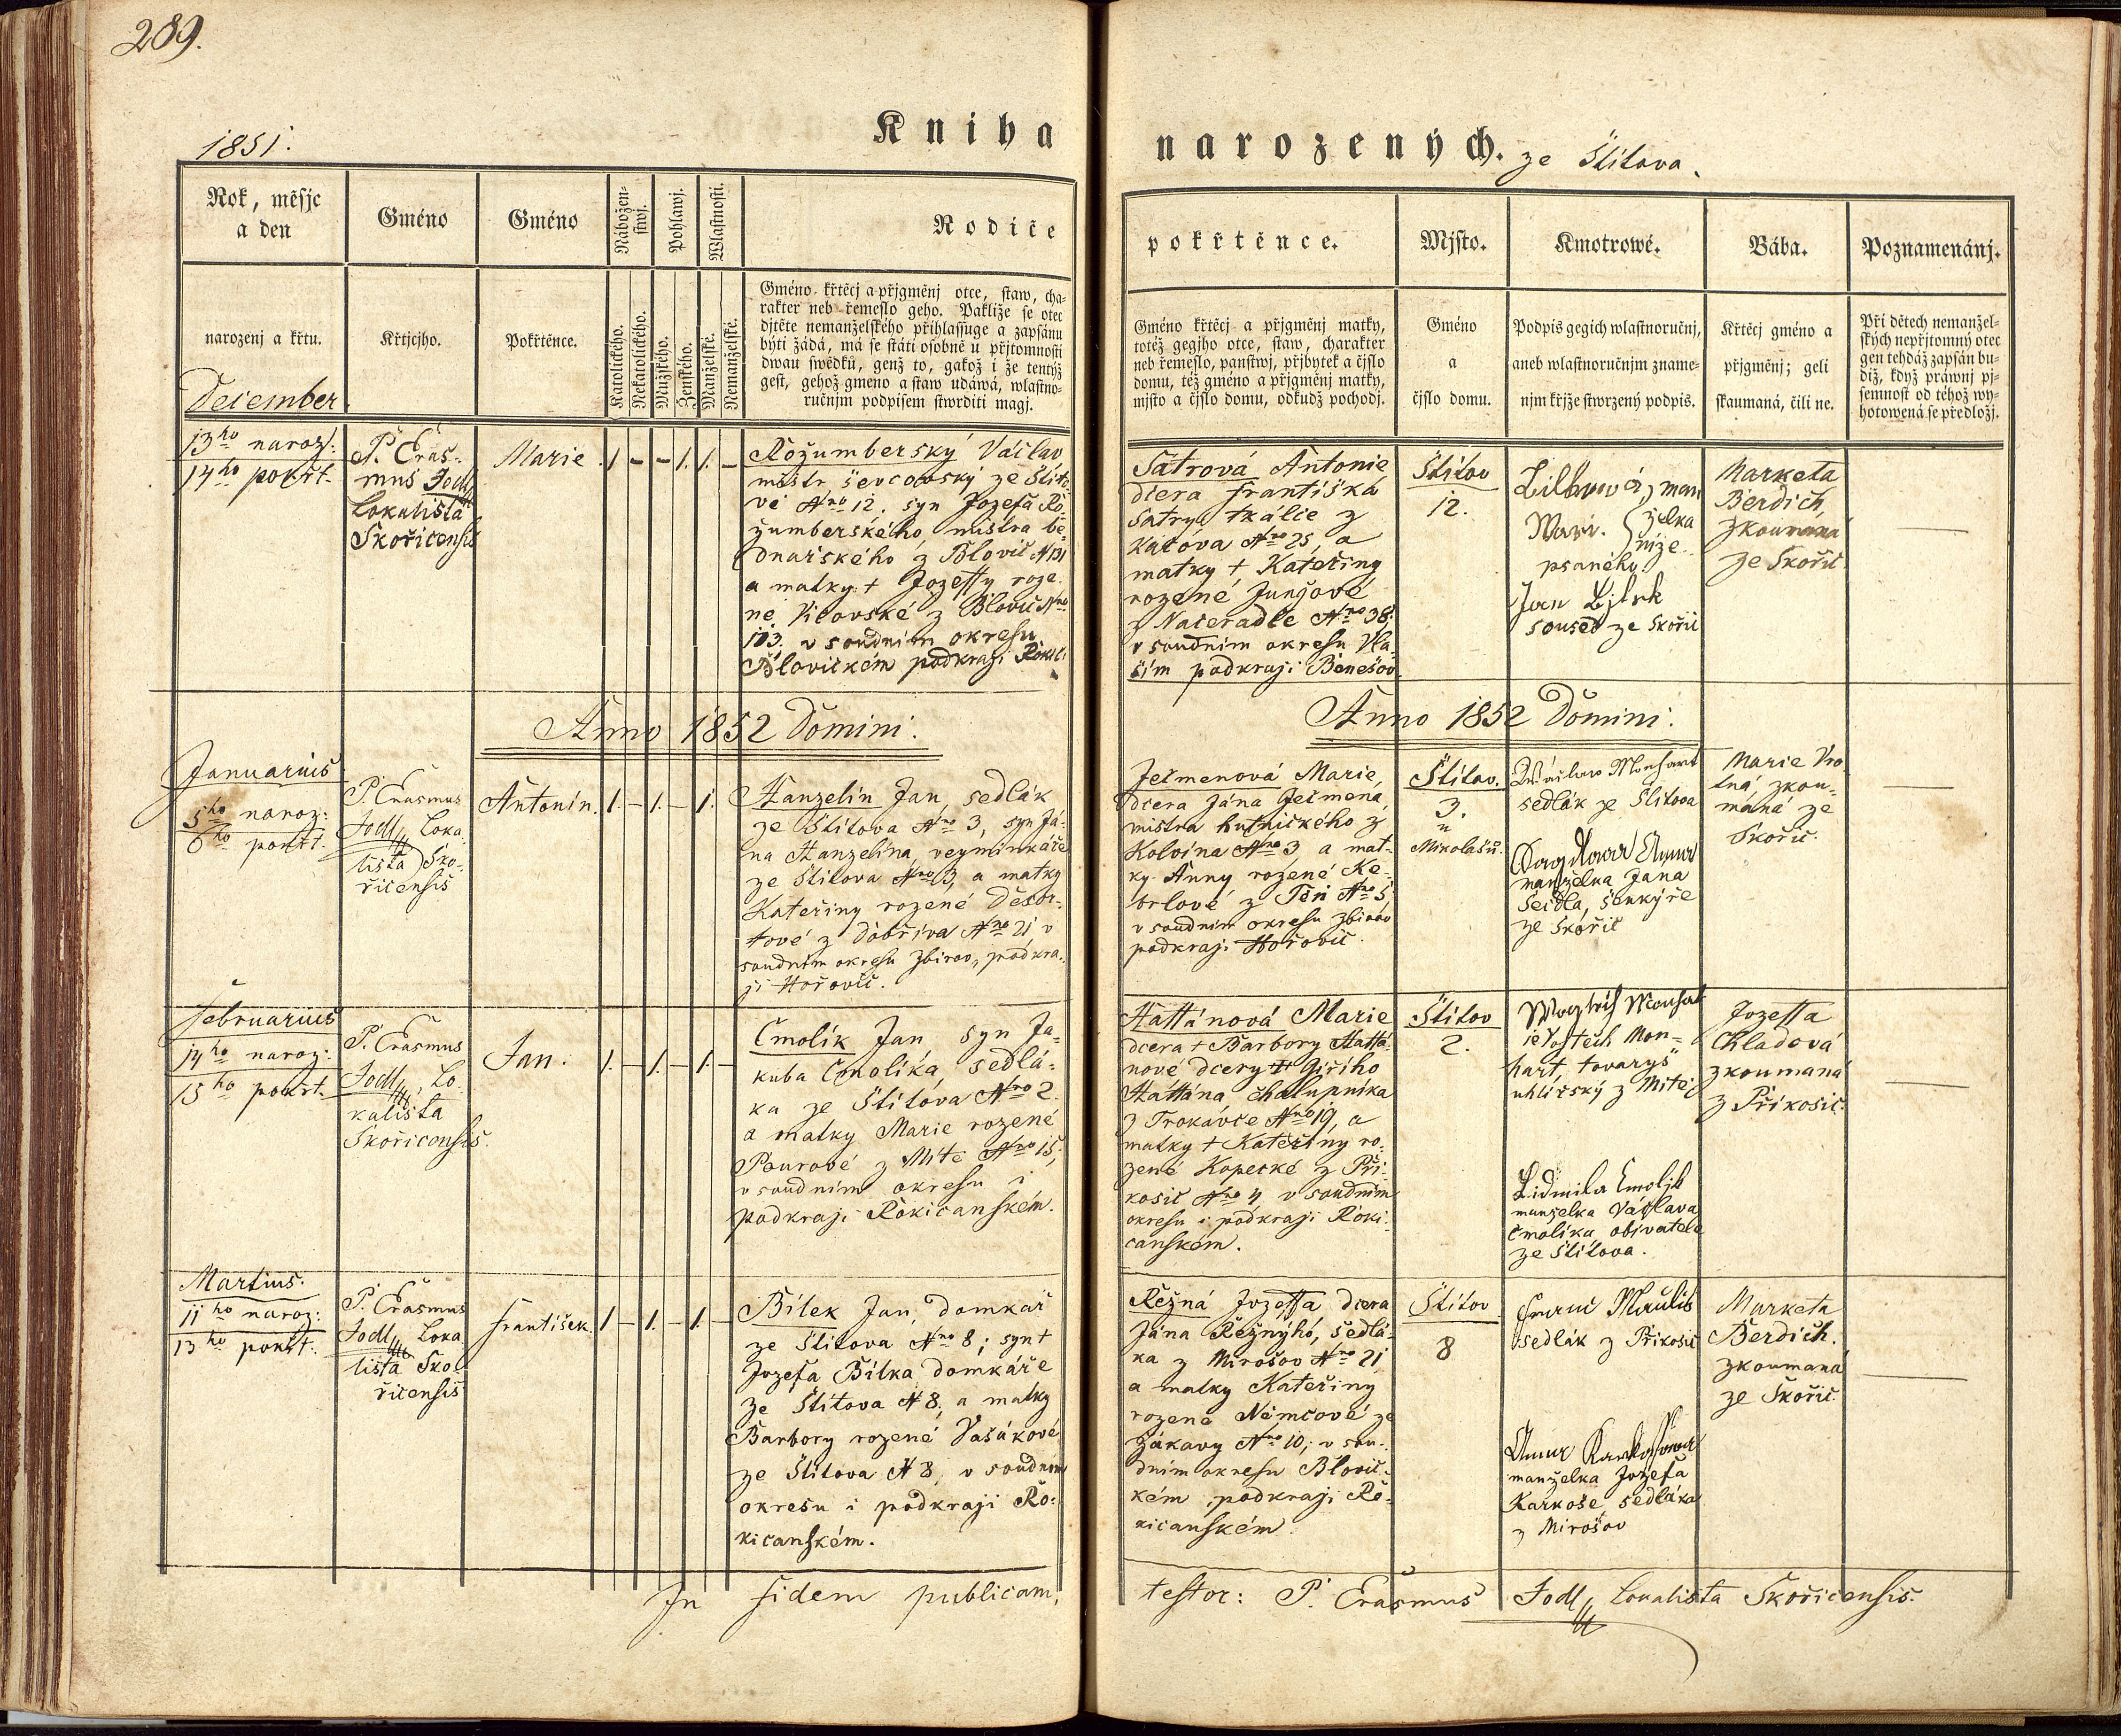 289.
1851.
Kniha
narozených. ze Štítova.
Rok, měsjc
a den
Gméno
Gméno
Nábožen-
stwj.
Pohlawj.
Wlastnosti.
Rodiče
pokřtěnce.
Mjsto.
Kmotrowé.
Bába.
Poznamenánj.
narozenj a křtu.
Křtjcjho.
Pokřtěnce.
Katolického.
Nekatolického.
Mužského.
Ženského.
Manželské.
Nemanželské.
Gméno křtěcj a přjgměnj otce, staw, cha-
rakter neb řemeslo geho. Pakliže se otec
djtěte nemanželského přihlassuge a zapsánu
býti žádá, má se státi osobně u přjtomnosti
dwau swědků, genž to, gakož i že tentýž
gest, gehož gmeno a staw udáwá, wlastno-
ručnjm podpisem stwrditi magj.
Gméno křtěcj a přjgměnj matky,
totéž gegjho otce, staw, charakter
neb řemeslo, panstwj, přjbytek a čjslo
domu, též gméno a přjgměnj matky,
mjsto a čjslo domu, odkudž pochodj.
Gméno
a
čjslo domu.
Podpis gegich wlastnoručnj,
aneb wlastnoručnjm zname-
njm křjže stwrzený podpis.
Křtěcj gméno a
přjgměnj; geli
skaumaná, čili ne.
Při dětech nemanžel-
ských nepřjtomný otec
gen tehdáž zapsán bu-
diž, když práwnj pj-
semnost od téhož wy-
hotowená se předložj.
December
13ho naroz:
14ho pokřt.
P. Eras-
mus Jodl
Lokalista
Skořicensis
Marie
1. - - 1. 1. -
Rožumberský Václav
mistr ševcovský ze Štíto
vě Nro 12. syn Jozefa Ro
žumberského, mistra be
dnařského z Blovic N 131
a matky + Jozeffy roze
né Vilovské z Blovic Nro
103. v soudním okresu
Blovickém podkraji Rokici
Šatrová Antonie
dcera Františka
Šatry, tkálce z
Kácova Nro 25, a
matky + Kateřiny
rozené Junjové
z Načeradle Nro 38.
v soudním okresu Vla-
šim podkraji Benešov
Štítov
12.
man
Mari. želka
níže
psaného
Jan Bjlek
soused ze Skořic
Marketa
Berdich,
zkoumaná
ze Skořic
Anno 1852 Domini.
Anno 1852 Domini.
Januarius
5ho naroz:
6ho pokřt.
P. Erasmus
Jodl, Loka
lista Sko-
řicensis
Antonín.
1. - 1. - 1.
Hanzelin Jan, sedlák
ze Štítova Nro 3, syn Já-
na Hanzelina, veyminkáře
ze Štítova Nro 3, a matky
Kateřiny rozené Desor-
tové z Dobříva Nro 21 v
soudním okresu Zbirov, podkra-
ji Hořovic.
Ječmenová Marie,
dcera Jána Ječmena,
mistra hutnického z
Kolvína Nro 3 a mat-
ky Anny rozené Ke-
brlové z Těn Nro 5,
v soudním okresu Zbirov
podkraji Hořovic.
Štítov.
3.
u
Mikolášů.
Wáclaw Monhart
sedlák ze Štítova
Anna
manželka Jana
Seidla, šenkýře
ze Skořic
Marie Vro
tná, zkou-
maná ze
Skořic.
Februarius
14ho naroz:
15ho pokřt.
P. Erasmus
Jodl, Lo
kalista
Skořicensis.
Jan.
1. - 1. - 1. -
Cmolík Jan syn Ja-
kuba Cmolíka, sedlá-
ka ze Štítova Nro 2.
a matky Marie rozené
Pourové z Mítě Nro 15,
v soudním okresu i
podkraji Rokicanském.
Hattánová Marie
dcera + Barbory Hattá-
nové dcery + Giřího
Hattána chalupníka
z Trokavce Nro 19, a
matky + Kateřiny ro-
zené Kopecké z Pří-
kosic Nro 4 v soudním
okresu i podkraji Roki-
canském.
Štítov
2.
Wogtěch Monhat
je Vojtěch Mon-
hart tovaryš
uhlířský z Mítě
Lidmila Cmolik
manželka Václava
Cmolíka, obivatele
ze Štítova.
Jozeffa
Chladová
zkoumaná
z Příkosic.
Martius.
11ho naroz:
13ho pokřt.
P. Erasmus
Jodl, Loka
lista Sko-
řicensis
František.
1. - 1. - 1. -
Bílek Jan, domkář
ze Štítova Nro 8; syn +
Jozefa Bílka domkáře
ze Štítova N 8, a matky
Barbory rozené Vašákové
ze Štítova N 8, v soudním
okresu i podkraji Ro-
kicanském.
Režná Jozeffa dcera
Jána Režnýho, sedlá-
ka z Mirošov Nro 21
a matky Kateřiny
rozené Němcové ze
Zákavy Nro 10, v sou-
dním okresu Blovic-
kém, podkraji Ro-
kicanském.
Štítov
8
sedlák z Příkosic
Anna
manželka Jozefa
Karkoše, sedláka
z Mirošov
Marketa
Berdich.
zkoumaná
ze Skořic.
In fidem publicam,
testor: P. Erasmus Jodl, Lokalista Skořicensis.